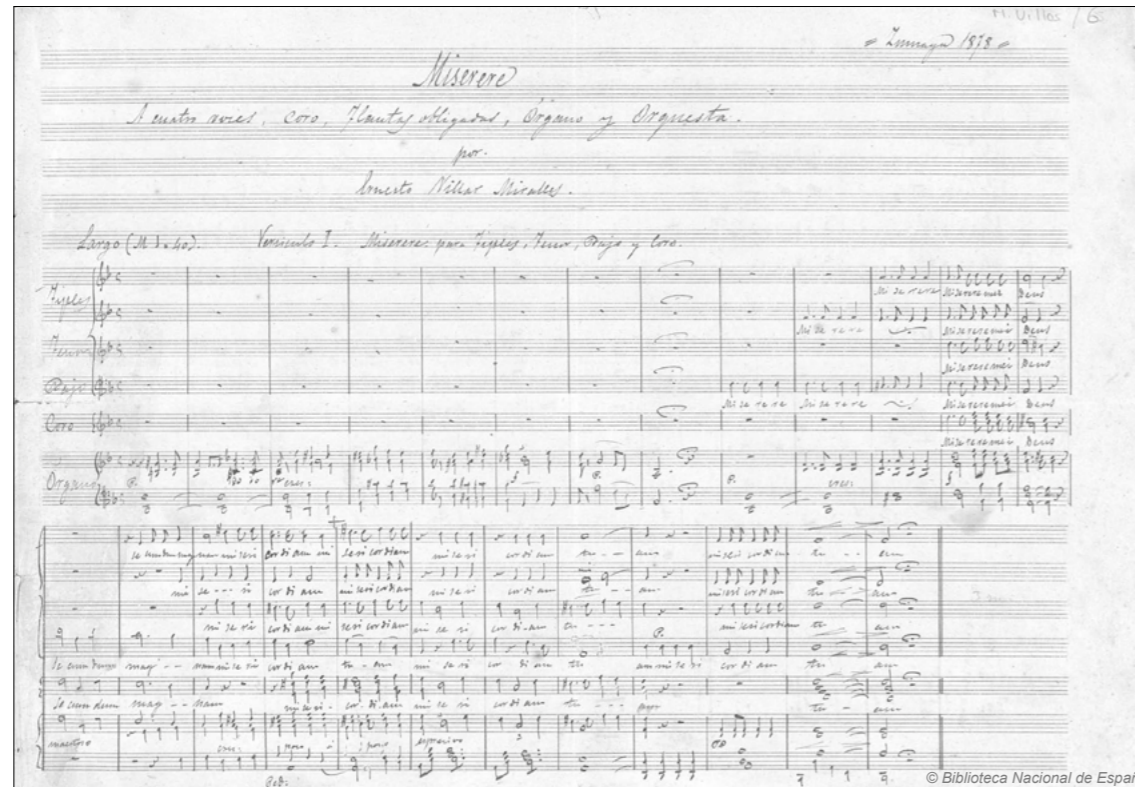 M. Villar / 6
= Zumaya 1878 =
Miserere
A cuatro voces, Coro, Flautas obligadas, Órgano y Orquesta.
por.
Ernesto Villar Miralles.
Largo (M = 40). Versiculo I. Miserere: para Tiples, Tenor, Bajo y Coro.
Tiples
Miserere Miserere mei Deus
Miserere Miserere mei Deus
Tenor
Miserere mei Deus
Bajo
Miserere Miserere Miserere mei Deus
Coro
Miserere mei Deus
Organo
P. cres: P. cres:
secundum magnam miseri cor di am mi seri cordiam mi se ri cor di am tu -- am misericordiam tu -- am
mi se -- ri cor di am misericordiam mi se ri cordiam tu -- am misericordiam tu -- am
mi se ri cor di am mi sericordiam mi se ri cor di-am tu --- misericordiam tu am
Secundum mag -- nam mi se ri cor di am tu -- am mi se ri cor di am tu am mi se ri cor di am tu am
Secundum mag -- nam mi se ri - cor - di - am mi se ri cor di am tu --
tu - am
maestoso cres: poco á poco espresivo
Ped:
© Biblioteca Nacional de Españ